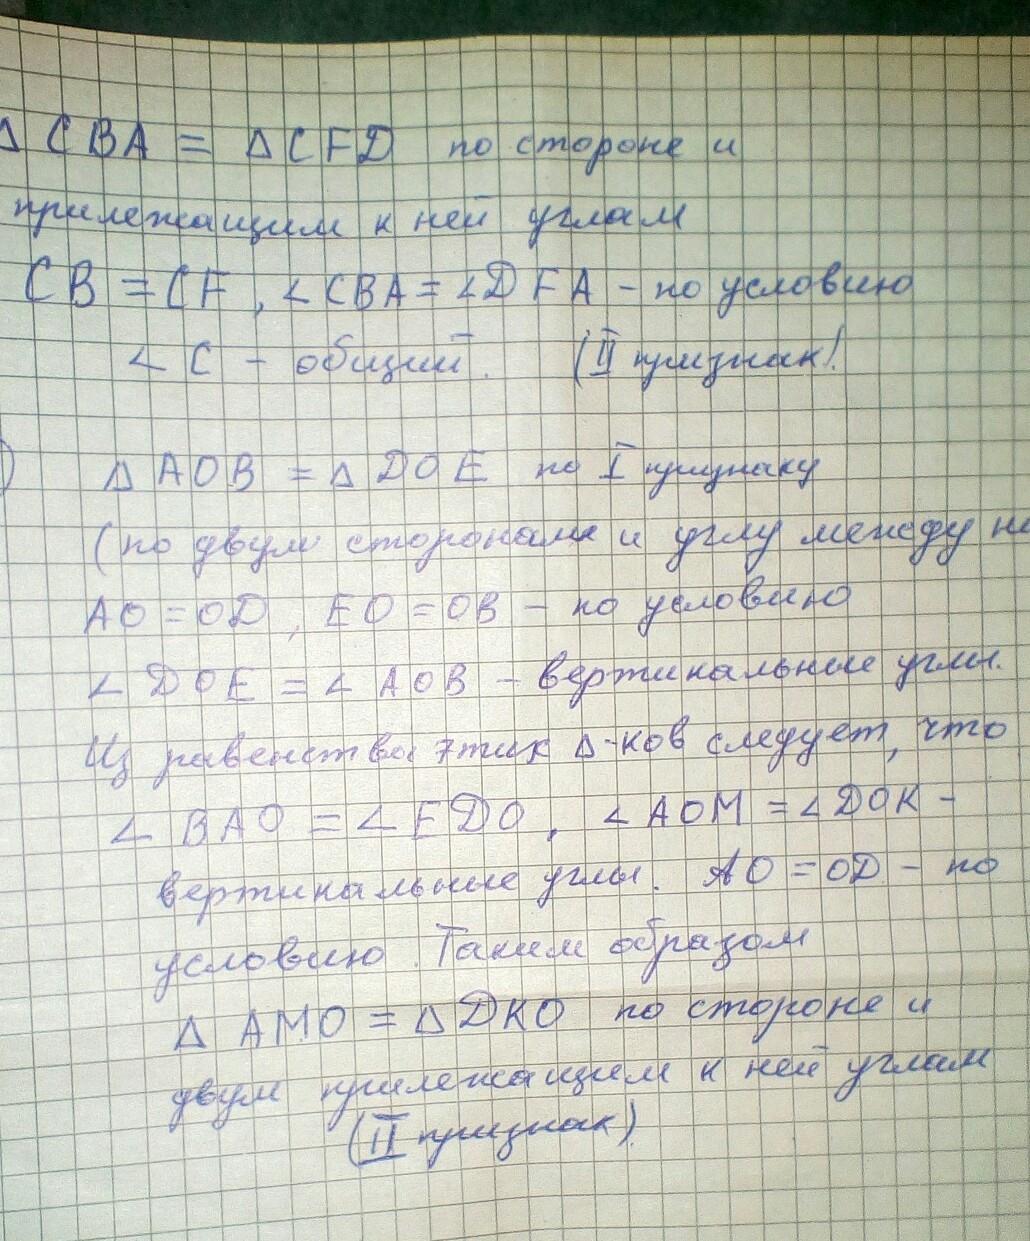 Δ CBA = Δ CFD по стороне и
прилежащим к ней углам
CB = CF, ∠CBA = ∠DFA – по условию
∠ C – общий. (II признак!
) Δ AOB = Δ DOE по I признаку
(по двум сторонам и углу между ни
AO = OD, EO = OB – по условию
∠ DOE = ∠ AOB – вертикальные углы.
Из равенства этих Δ-ков следует, что
∠ BAO = ∠ EDO, ∠ AOM = ∠ DOK –
вертикальные углы. AO = OD – по
условию. Таким образом
Δ AMO = Δ DKO по стороне и
двум прилежащим к ней углам
(II признак).